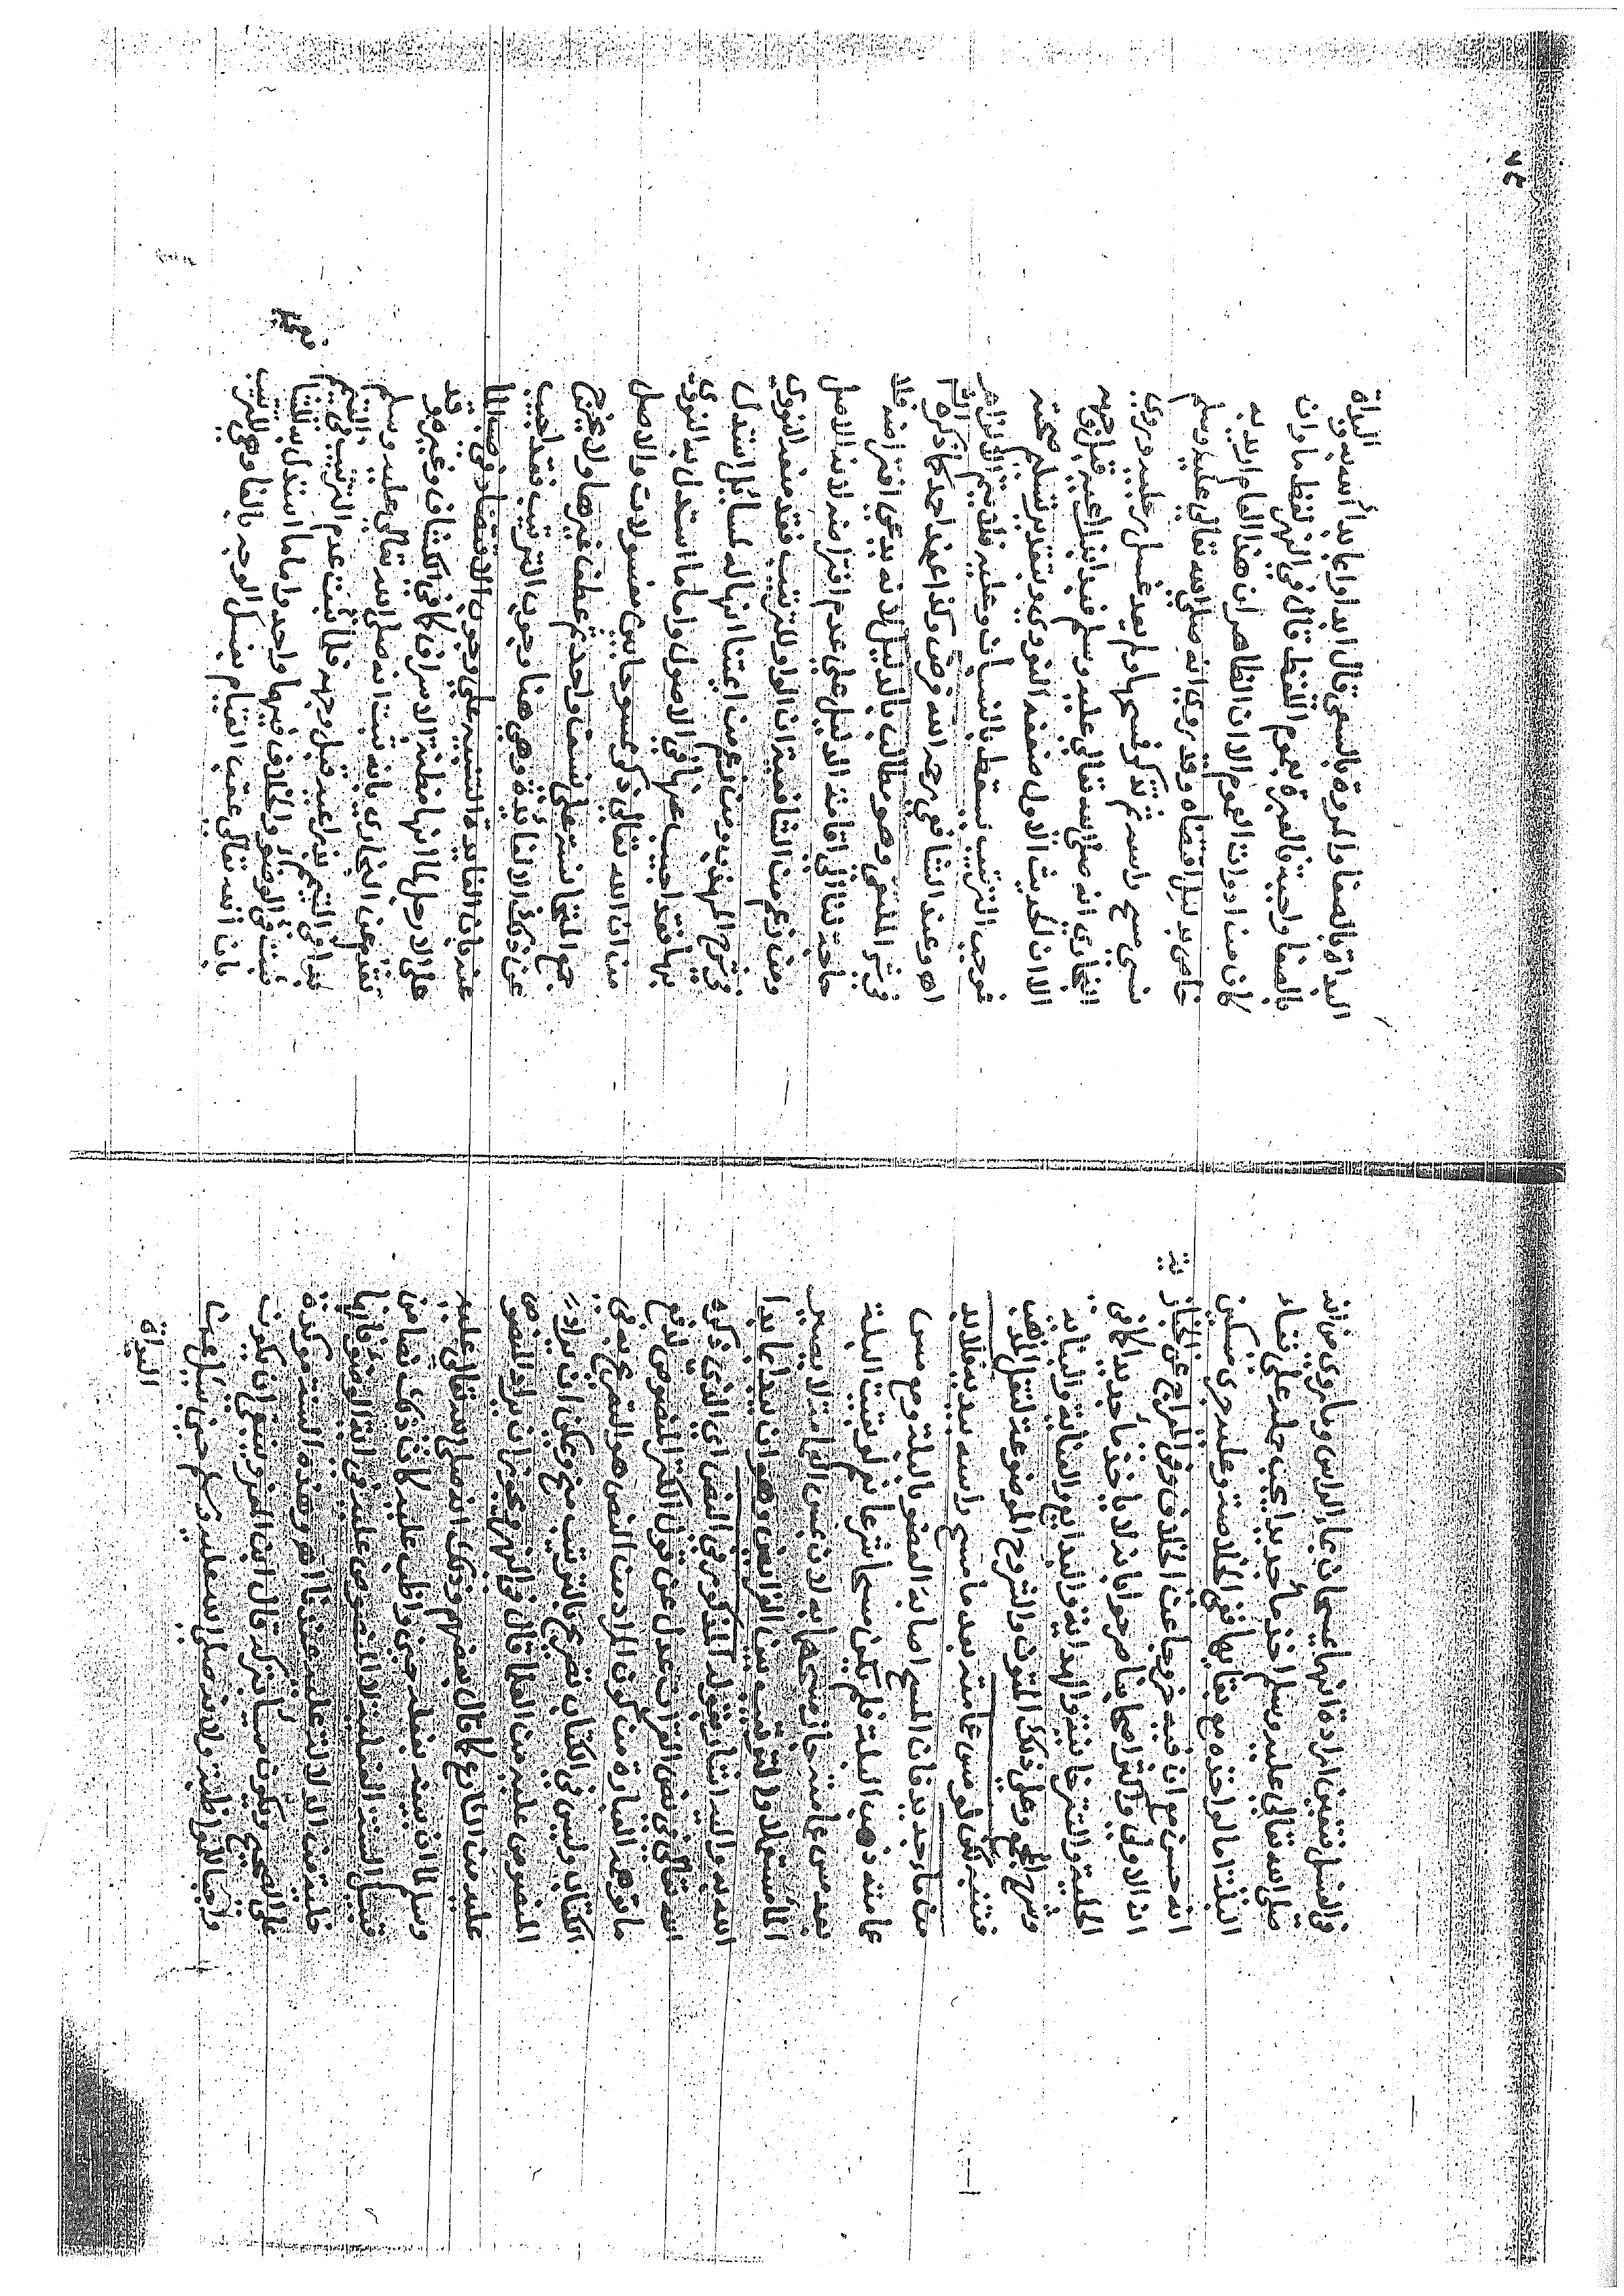 في الغسل فتعين ارادة انهما يمسحان بماء الراس وما روي من انه
صلى الله تعالى عليه وسلم اخذ ماء جديدا يجب حمله على فناء
البلة اما لو اخذه مع بقائها ففي الخلاصة وعليه جرى مسكين
انه حسن مع ان فيه خروجا عن الخلاف وفي المعراج عن الخبازية
ان الاولى واكثر اصحابنا صرحوا بانه لا ياخذ ماء جديدا كما في
الحلية والتترخانية والهداية والبدايع والعناية والنهاية
وشرح المجمع وعلى ذلك المتون والشروح الموضوعة لنقل المذهب
فتنبه لكن لو مس عمامته بعد ما مسح راسه بيديه فلا بد
من ماء جديد فان المسح اصابة العضو بالبلة وهو مس
عمامته ذهبت البلة فلم يكن مسحا شرعا نعم لو بقيت البلة
بعد مس عمامته جاز مسحهما به لان بمس العمامة لا يصير
الماء مستعملا والترتيب بين الفرائض وهو ان يبدا بما بدا
الله به واليه اشار بقوله المذكور في النص اي الذي ذكره
الله تعالى في نص القران عدل عن قول الكنز المنصوص لدفع
ما توهمه العبارة من كون المراد من النص هو التصريح بمعنى
الكتاب وليس في الكتاب تصريح بالترتيب منح ويمكن ان يراد
المنصوص عليه من العلما قال في النهر ويجوز ان يراد المنصوص
عليه من الشارع كما قال بعضهم وذلك انه صلى الله تعالى عليه
وسلم لما ان بينه بفعله حين واظب عليه كان ذلك نصا من
قبيل السنة الفعلية لا المنصوص عليه في اية الوضوء فانها
خلية من الدلالة عليه عندنا اهـ وهذه السنة موكدة
على الصحيح ويكون مسيا بتركه قال ابن الهمز وينبغي ان يكون
واجبا للمواظبة ولانه صلى الله عليه وسلم حين سئل عن
البداة
البداة بالصفا والمروة بالسعي قال ابداوا بما بدا الله به وبداة
بالصفا واجبة فالعبرة بعموم اللفظ قال في النهر لفظ ما وان
كان من ادوات العموم الا ان الظاهر ان هذا العام اريد به
خاص بدليل اقتضاه وقد روي انه صلى الله تعالى عليه وسلم
نسي مسح راسه ثم تذكر فمسحها ولم يعد غسل رجليه وروي
البخاري انه صلى الله تعالى عليه وسلم فيه ابتدا بذراعيه قبل وجهه
الا ان الحديث الاول ضعفه النووي وبتقدير تسليم صحته
فوجب الترتيب يسقط بالنسيان وعليه فلا يتم الالزام
اهـ وعند الشافعي رحمه الله فرض وكذا عند احمد كما ذكره
في شرح الملتقى وهو مطالب بالدليل لانه يدعي افتراضه فلا
حاجة لنا الى اقامة الدليل على عدم افتراضه لانه الاصل
ومن زعم من الشافعية ان الواو للترتيب فقد ضعفه النووي
في شرح المهذب ومن زعم من ائمتنا انها له لمسائل استدل
بها فقد اجيب عنها في الاصول واما ما استدل به النووي
من ان الله تعالى ذكر ممسوحا بين مغسولات والاصل
جمع المتجانسة على نسق واحد ثم عطف غيرها ولا يخرج
عن ذلك الا لفائدة وهي هنا وجوب الترتيب فقد اجيب
عنه بان الفايدة التنبيه على وجوب الاقتصاد في صب الماء
على الارجل لما انها مظنة الاسراف كما في الكشاف وغيره وقد
تقدم عن البخاري بانه ثبت انه صلى الله تعالى عليه وسلم
بدا في التيمم بذراعيه قبل وجهه فلما ثبت عدم الترتيب في التيمم
ثبت في الوضوء والخلاف فيهما واحد واما ما استدل به للشافعي
بان الله تعالى عقب القيام بغسل الوجه بالفا وهي للترتيب